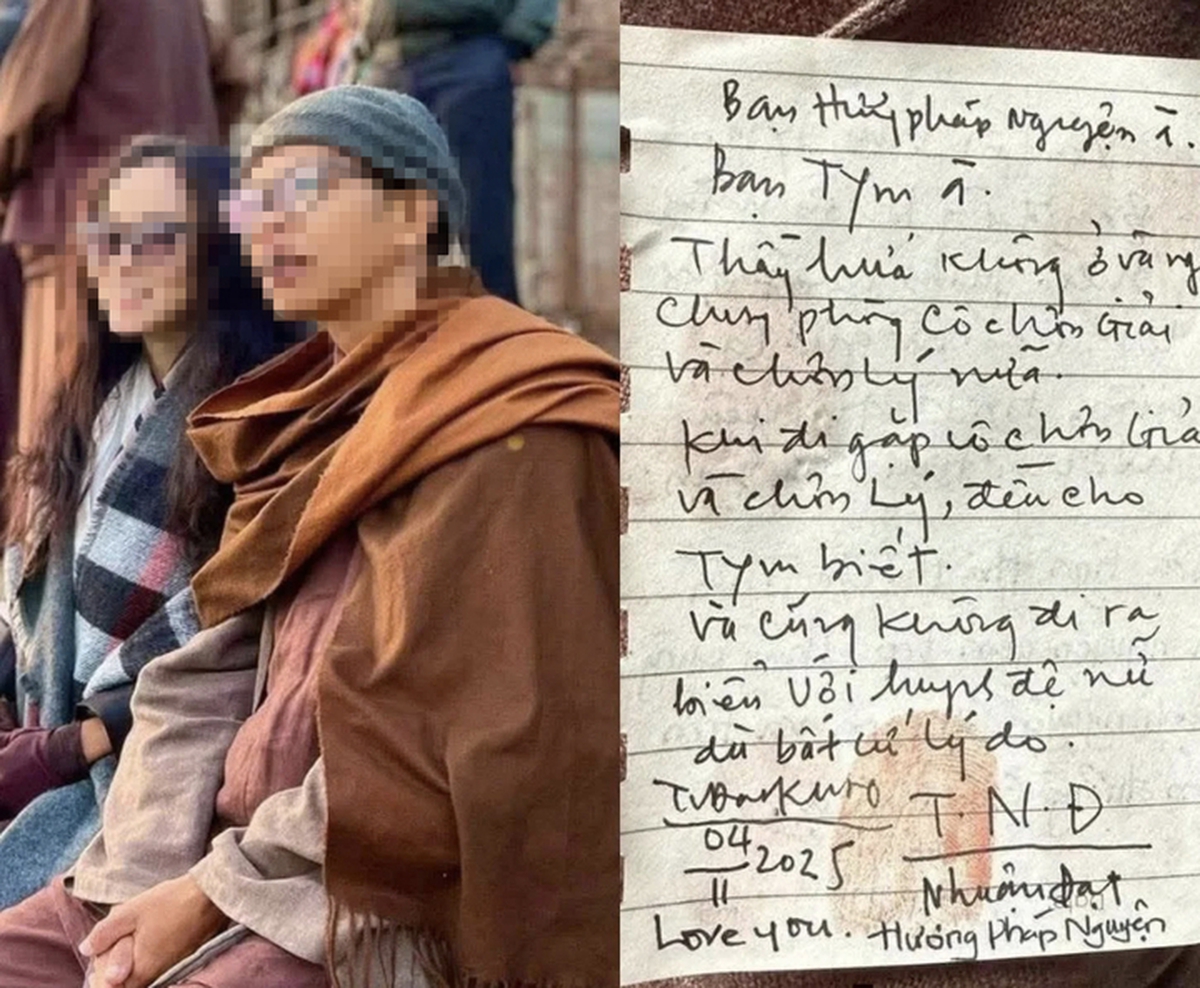 Bạn Hướng pháp Nguyện à.
Bạn Tym à.
Thầy hứa không ở và ng
chung phòng cô chơn Giải
và chơn Lý nữa.
Khi đi gặp cô chơn Giả
và chơn Lý, đều cho
Tym biết.
và cũng không đi ra
biển với huynh đệ nữ
dù bất cứ lý do.
T.N.Đ
04
11 2025
Nhuận đạt
Love you. Hướng Pháp Nguyện